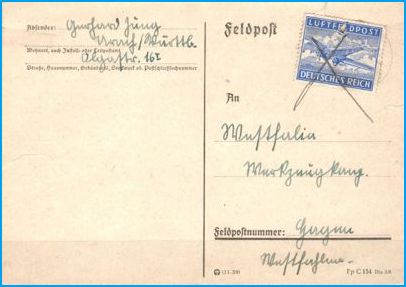 Absender: Gerhard Jung
Urach/Württb.
Wohnort, auch Zustell- oder Leitpostamt
Olgastr. 16I
Straße, Hausnummer, Gebäudeteil, Stockwerk od. Postschließfachnummer
Feldpost
LUFTFELDPOST
DEUTSCHES REICH
An
Westfalia
Werkzeugkomp.
Feldpostnummer: Hagen
Westfahlen
(11.39)
Fp C 154 Din A6